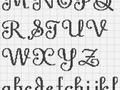 M N O P Q
R S T U V
W X Y Z
a b c d e f g h i j k l